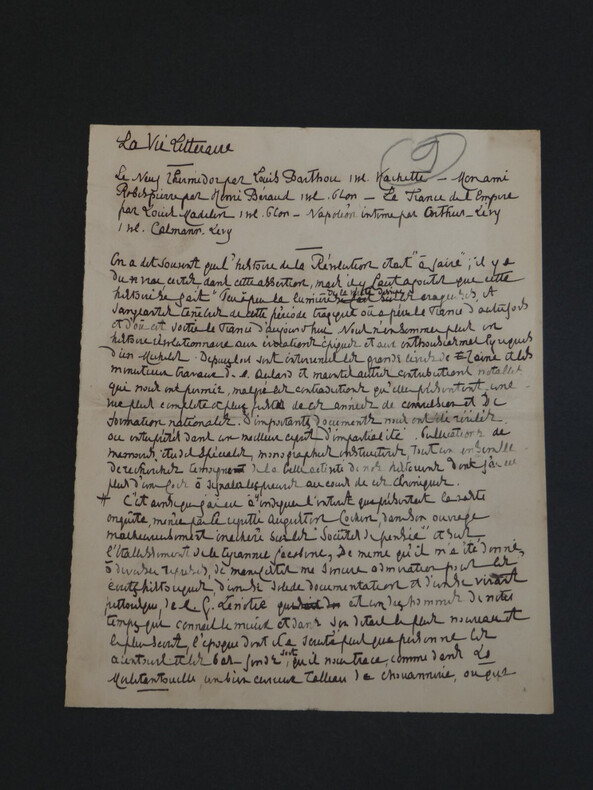 La Vie littéraire
2
Le Neuf Thermidor par Louis Barthou 1 vol. Hachette — Mon ami
Robespierre par Henri Béraud 1 vol. Plon — La France de l'Empire
par Louis Madelin 1 vol. Plon — Napoléon intime par Arthur-Lévy
1 vol. Calmann-Levy
On a dit souvent que l'histoire de la Révolution était "à faire"; il y a
du vrai certes dans cette assertion, mais il y faut ajouter que cette
histoire se fait. Peu à peu la lumière
sanglantes ténèbres de cette période tragique où a péri la France d'autrefois
et d'où est sortie la France d'aujourd'hui. Nous n'en sommes plus en
histoire révolutionnaire aux évocations épiques et aux enthousiasmes lyriques
d'un Michelet. Depuis lors sont intervenus les grands livres de Taine et les
minutieux travaux de M. Aulard et maintes autres contributions notables
qui nous ont permis, malgré les contradictions qu'elles présentent, une
vue plus complète et plus juste de ces années de convulsion et de
formation nationales. D'importants documents nous ont été révélés
ou interprétés dans un meilleur esprit d'impartialité. Publications de
mémoires, études spéciales, monographies constituent tout un ensemble
de recherches témoignant de la belle activité de nos historiens dont j'ai eu
plus d'une fois à signaler les preuves au cours de ces chroniques.
C'est ainsi que j'ai eu à indiquer l'intérêt que présentait la vaste
enquête, menée par le regretté Augustin Cochin, dans son ouvrage
malheureusement inachevé sur les "Sociétés de pensée" et sur
l'établissement de la tyrannie jacobine, de même qu'il m'a été donné,
à diverses reprises, de manifester ma sincère admiration pour les
écrits historiques d'une si solide documentation et d'un si vivant
pittoresque, de G. Lenotre qui est un des hommes de notre
temps qui connaît le mieux et dans son détail le plus nouveau et
le plus secret, l'époque dont il a scruté plus que personne les
alentours et les bas fonds, soit qu'il nous trace, comme dans La
Mirlitantouille un bien curieux tableau de chouannerie, ou que